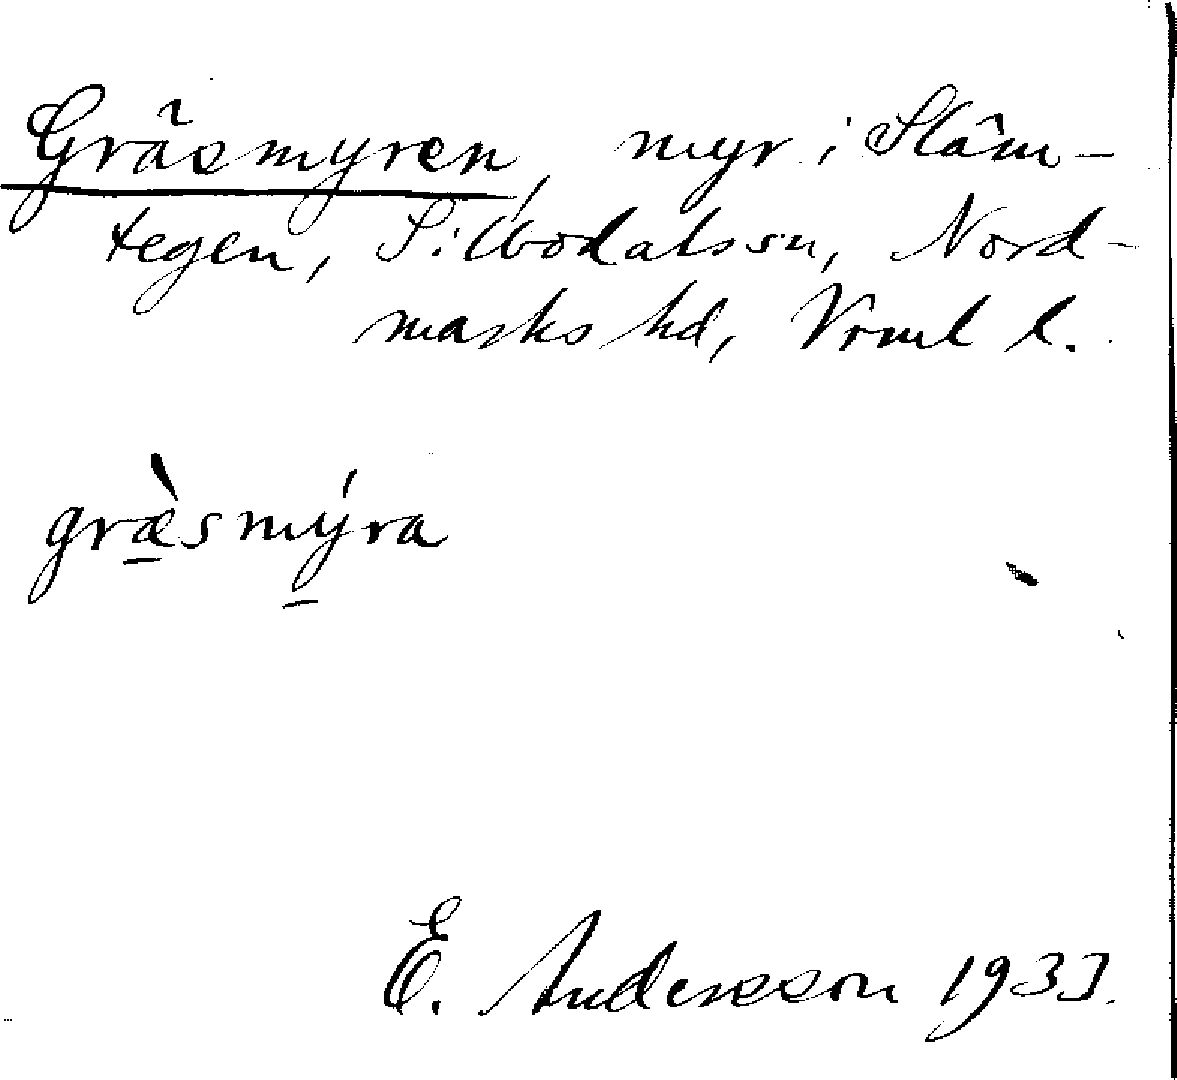 Gräsmyren, myr i Släm-
tegen, Silbodals sn, Nord-
marks hd, Vrml l.
græ̀smýra
E. Andersson 1933.